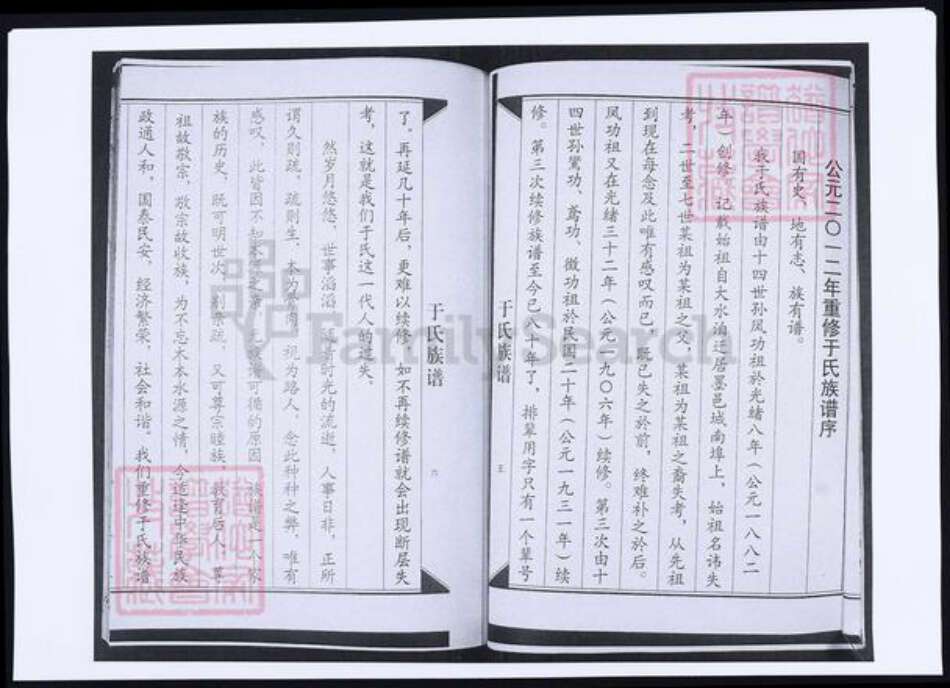 公元二〇一二年重修于氏族谱序
国有史、地有志、族有谱。
我于氏族谱由十四世孙凤功祖於光绪八年(公元一八八二
年)创修、记载始祖自大水泊迁居墨邑城南埠上,始祖名讳失
考,二世至七世某祖为某祖之父、某祖为某祖之裔失考,从先祖
到现在每念及此唯有感叹而已,既已失之於前,终难补之於后。
凤功祖又在光绪三十二年(公元一九〇六年)续修。第三次由十
四世孙鸾功、鸢功、徵功祖於民国二十年(公元一九三一年)续
修。第三次续修族谱至今已八十年了,排辈用字只有一个辈号
于氏族谱
五
于氏族谱
六
了。再延几十年后,更难以续修,如不再续修谱就会出现断层失
考,这就是我们于氏这一代人的过失。
然岁月悠悠、世事滔滔,随着时光的流逝,人事日非,正所
谓久则疏,疏则生,本为骨肉,视为路人。念此种种之弊,唯有
感叹,此皆因不知本源之案,无族谱可循的原因。族谱是一个家
族的历史,既可明世次,别亲疏,又可尊宗睦族,教育后人,尊
祖故敬宗,敬宗故收族,为不忘木本水源之情,今适逢中华民族
政通人和,国泰民安,经济繁荣,社会和谐。我们重修于氏族谱
FamilySearch